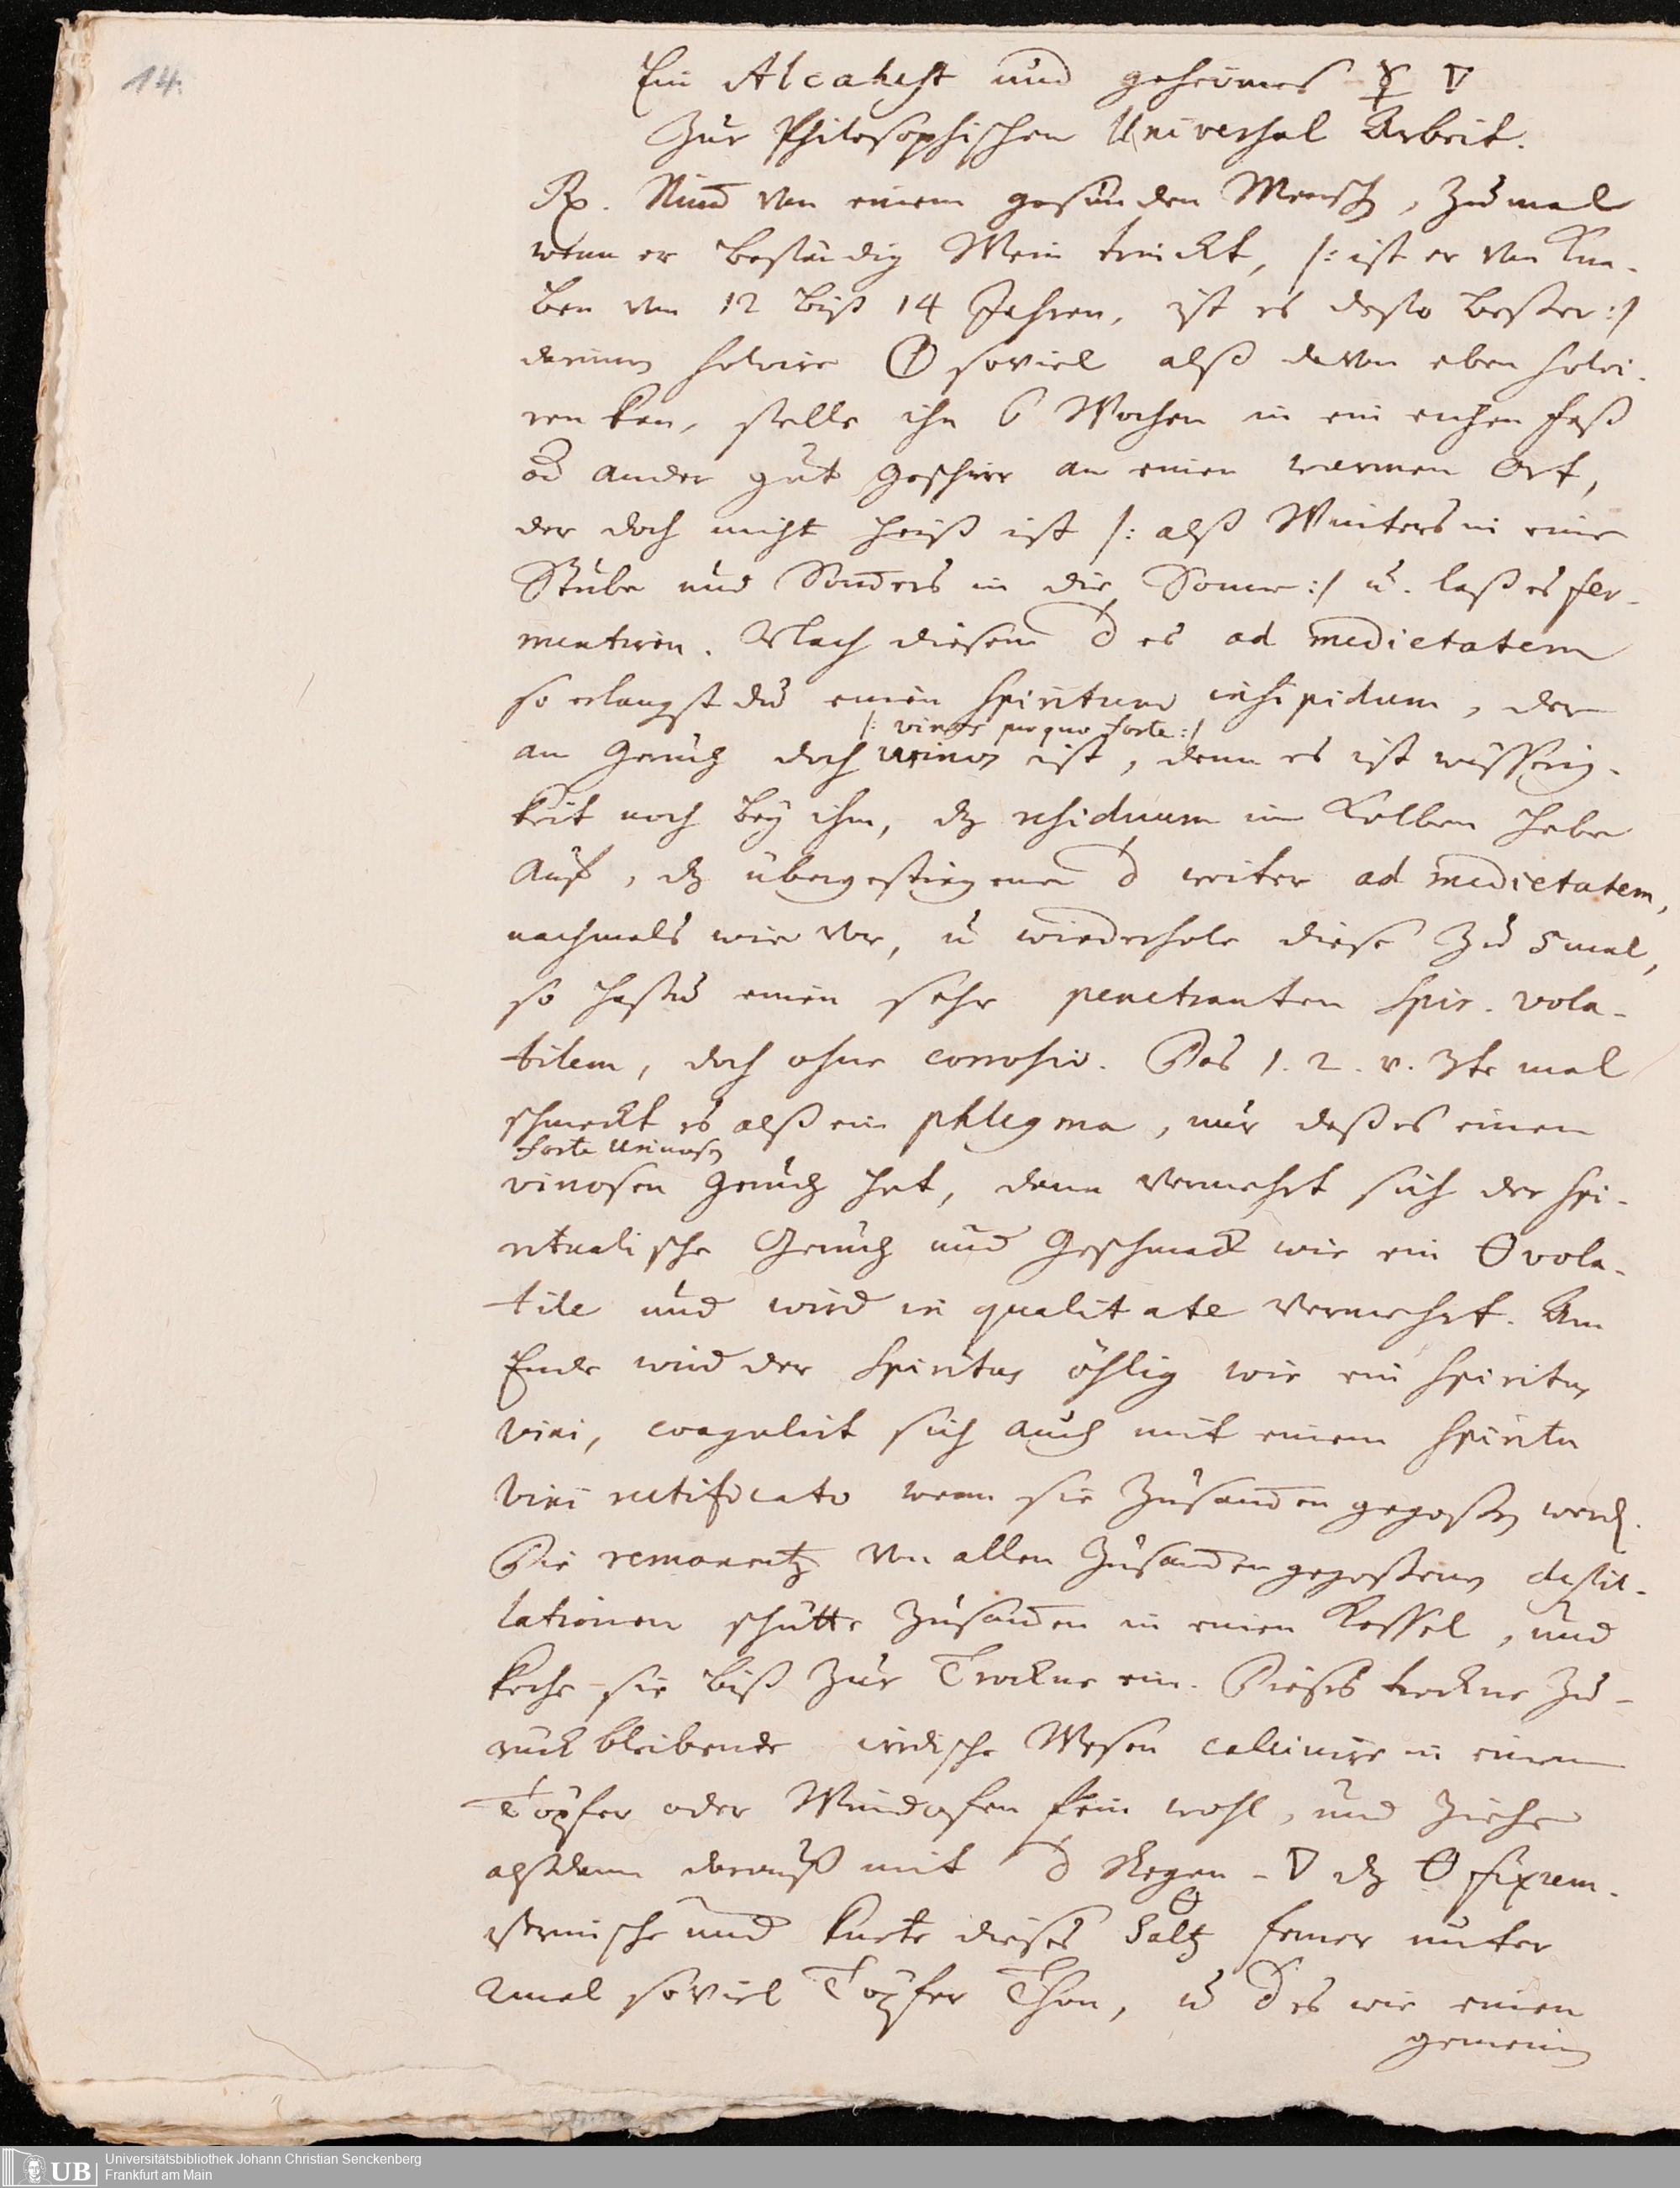 14.
Ein Alcahest und geheimes ☿ 🜄
Zur Philosophischen Universal Arbeit.
Rp. Nim̅ von einem gesunden Mensch, zumal
wenn er beständig Wein trinckt, /: ist er von Kna-
ben von 12 biß 14 Jahren, ist es desto beßer :/
darinn solvire 🜕 soviel alß davon eben solvi-
ren kan, stelle ihn 6 Wochen in ein eichen Faß
od ander gut Geschirr an einen warmen Ort,
der doch nicht heiß ist /: alß Winters in eine
Stube und Som̅ers in die Sonne :/ u. laß es fer-
mentiren. Nach diesem d es ad medietatem
so erlangst du einen Spiritum insipidum, der
/: vinos pro quo forte :/
an Geruch doch urinos ist, denn es ist wäßrig-
keit noch bey ihm, dz residuum im Kolben hebe
auf, dz übergestiegene d weiter ad medietatem,
nachmals wie vor, u wiederhole diese zu 5 mal,
so hastu einen sehr penetranten Spir. vola-
tilem, doch ohne corrosiv. Das 1. 2. v. 3te mal
schmeckt es alß ein phlegma, nur daß es einen
forte urinosen
vinosen Geruch hat, denn vermehrt sich der spi-
ritualische Geruch und Geschmack wie ein 🜔 vola-
tile und wird in qualitate vermehrt. Am
Ende wird der Spiritus öhlig wie ein Spiritus
Vini, coagulirt sich auch mit einem Spiritu
Vini rectificato wenn sie zusam̅en gegoßen werd.
Die remanentz von allen zusam̅en gegoßenen destil-
lationen schütte zusam̅en in einen Kessel, und
koche sie biß zur Trockne ein. Dieses trockne zu-
rück bleibende irdische Wesen calcinire in einem
Töpfer oder Windofen fein wohl, und ziehe
alßdann darauß mit d Regen-🜄 dz 🜔 fixum.
vermische und knete dieses Saltz ferner unter
2mal soviel Töpfer Thon, u d es wie einen
gemeinen
Universitätsbibliothek Johann Christian Senckenberg
Frankfurt am Main
UB